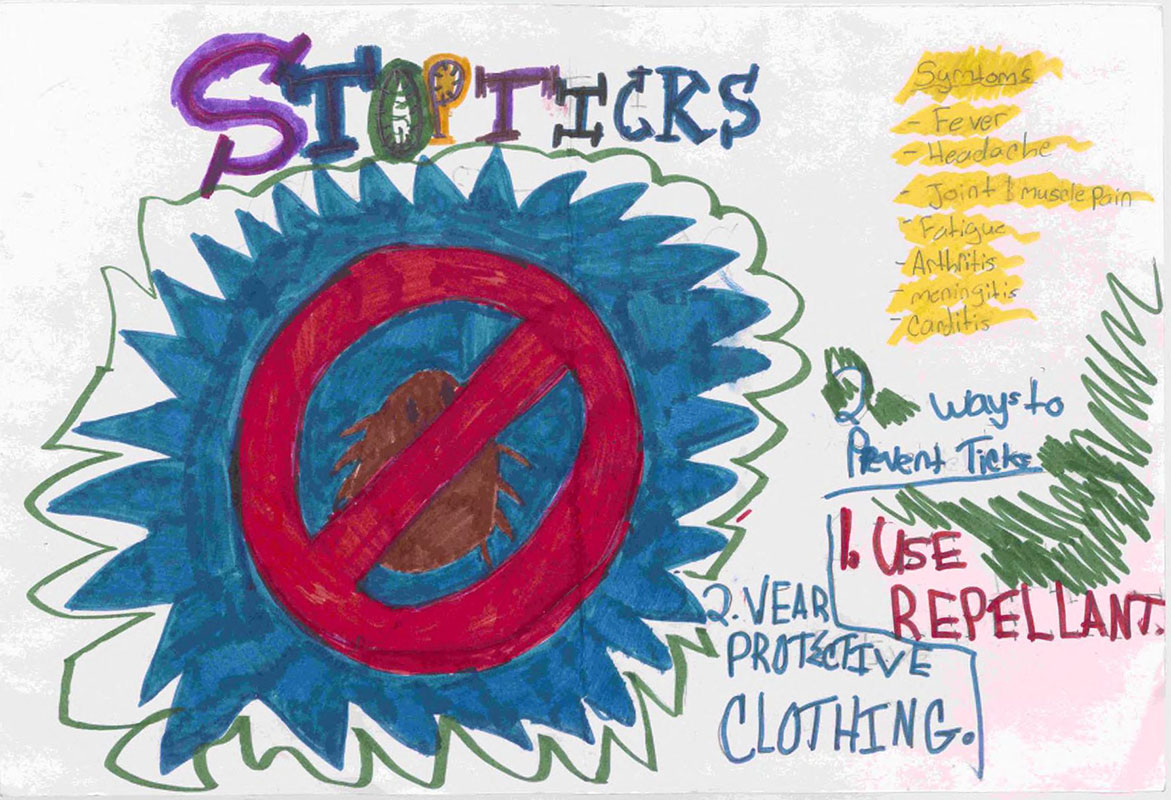 STOP TICKS
Symtoms
- Fever
- Headache
- Joint & muscle Pain
- Fatigue
- Arthritis
- meningitis
- Carditis
2 ways to
Prevent Ticks
1. USE
REPELLANT.
2. VEAR
PROTECTIVE
CLOTHING.